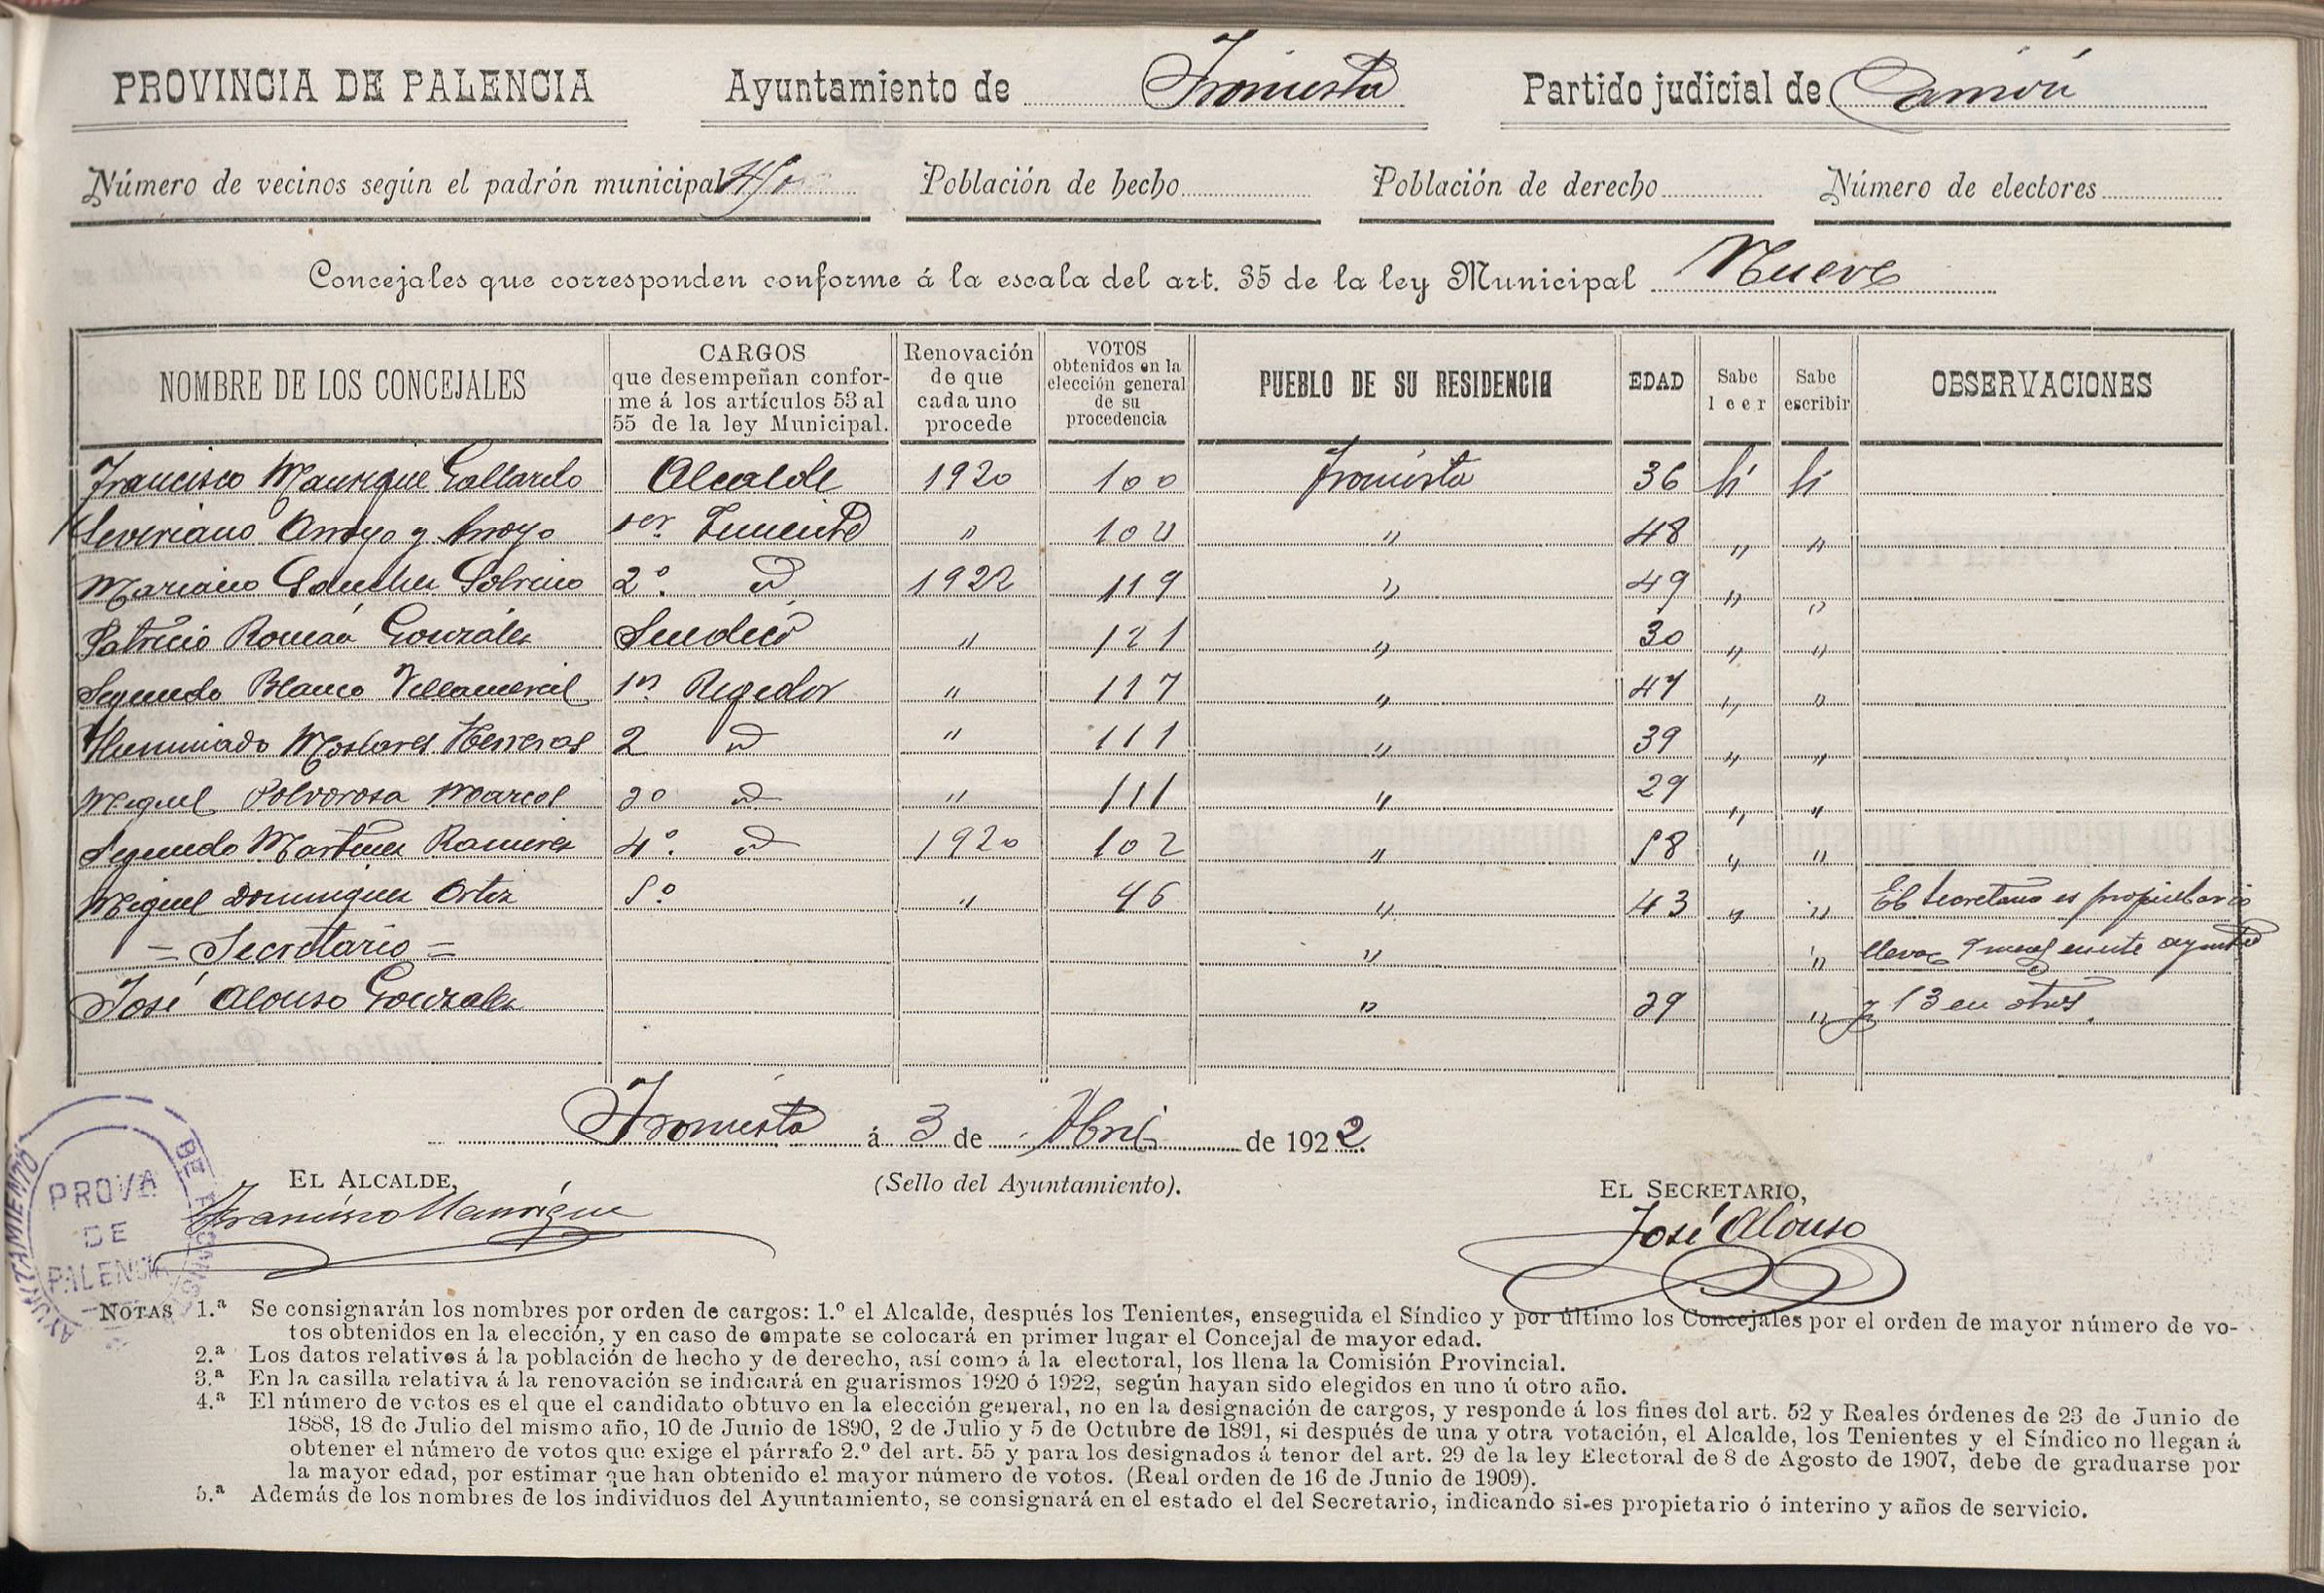 PROVINCIA DE PALENCIA Ayuntamiento de Fromista Partido judicial de Carrión
Número de vecinos según el padrón municipal Población de hecho Población de derecho Número de electores
Concejales que corresponden conforme á la escala del art. 35 de la ley Municipal Nueve
NOMBRE DE LOS CONCEJALES CARGOS que desempeñan confor- me á los artículos 53 al 55 de la ley Municipal. Renovación de que cada uno procede VOTOS obtenidos en la elección general de su procedencia PUEBLO DE SU RESIDENCIA EDAD Sabe leer Sabe escribir OBSERVACIONES
Francisco Manrique Gallardo Alcalde 1920 100 Fromista 36 si si
Severiano Arroyo y Arroyo 1er Teniente " 104 " 48 " "
Mariano Sanchez Sobrino 2º. id 1922 119 " 49 " "
Patricio Román González Sindico " 121 " 30 " "
Segundo Blanco Villameriel 1er Regidor " 117 " 47 " "
Iluminado Mostares Herreros 2 id " 111 " 39 " "
Miguel Polvorosa Marcos 3º id " 111 " 29 " "
Segundo Martinez Ramirez 4º. id 1920 102 " 58 " "
Miguel Dominguez Ortiz 5º " 46 " 43 " " El Secretario es propietario
= Secretario = " " lleva 9 meses en este ayunto
José Alonso Gonzalez " 29 " y 13 en otros.
Fromista á 3 de Abril de 1922.
EL ALCALDE, (Sello del Ayuntamiento). EL SECRETARIO,
Francisco Manrique José Alonso
AYUNTAMIENTO DE FROMISTA
PROVA
DE
PALENCIA
NOTAS 1.ª Se consignarán los nombres por orden de cargos: 1.º el Alcalde, después los Tenientes, enseguida el Síndico y por último los Concejales por el orden de mayor número de vo-
tos obtenidos en la elección, y en caso de empate se colocará en primer lugar el Concejal de mayor edad.
2.ª Los datos relativos á la población de hecho y de derecho, así como á la electoral, los llena la Comisión Provincial.
3.ª En la casilla relativa á la renovación se indicará en guarismos 1920 ó 1922, según hayan sido elegidos en uno ú otro año.
4.ª El número de votos es el que el candidato obtuvo en la elección general, no en la designación de cargos, y responde á los fines del art. 52 y Reales órdenes de 23 de Junio de
1888, 18 de Julio del mismo año, 10 de Junio de 1890, 2 de Julio y 5 de Octubre de 1891, si después de una y otra votación, el Alcalde, los Tenientes y el Síndico no llegan á
obtener el número de votos que exige el párrafo 2.º del art. 55 y para los designados á tenor del art. 29 de la ley Electoral de 8 de Agosto de 1907, debe de graduarse por
la mayor edad, por estimar que han obtenido el mayor número de votos. (Real orden de 16 de Junio de 1909).
5.ª Además de los nombres de los individuos del Ayuntamiento, se consignará en el estado el del Secretario, indicando si es propietario ó interino y años de servicio.